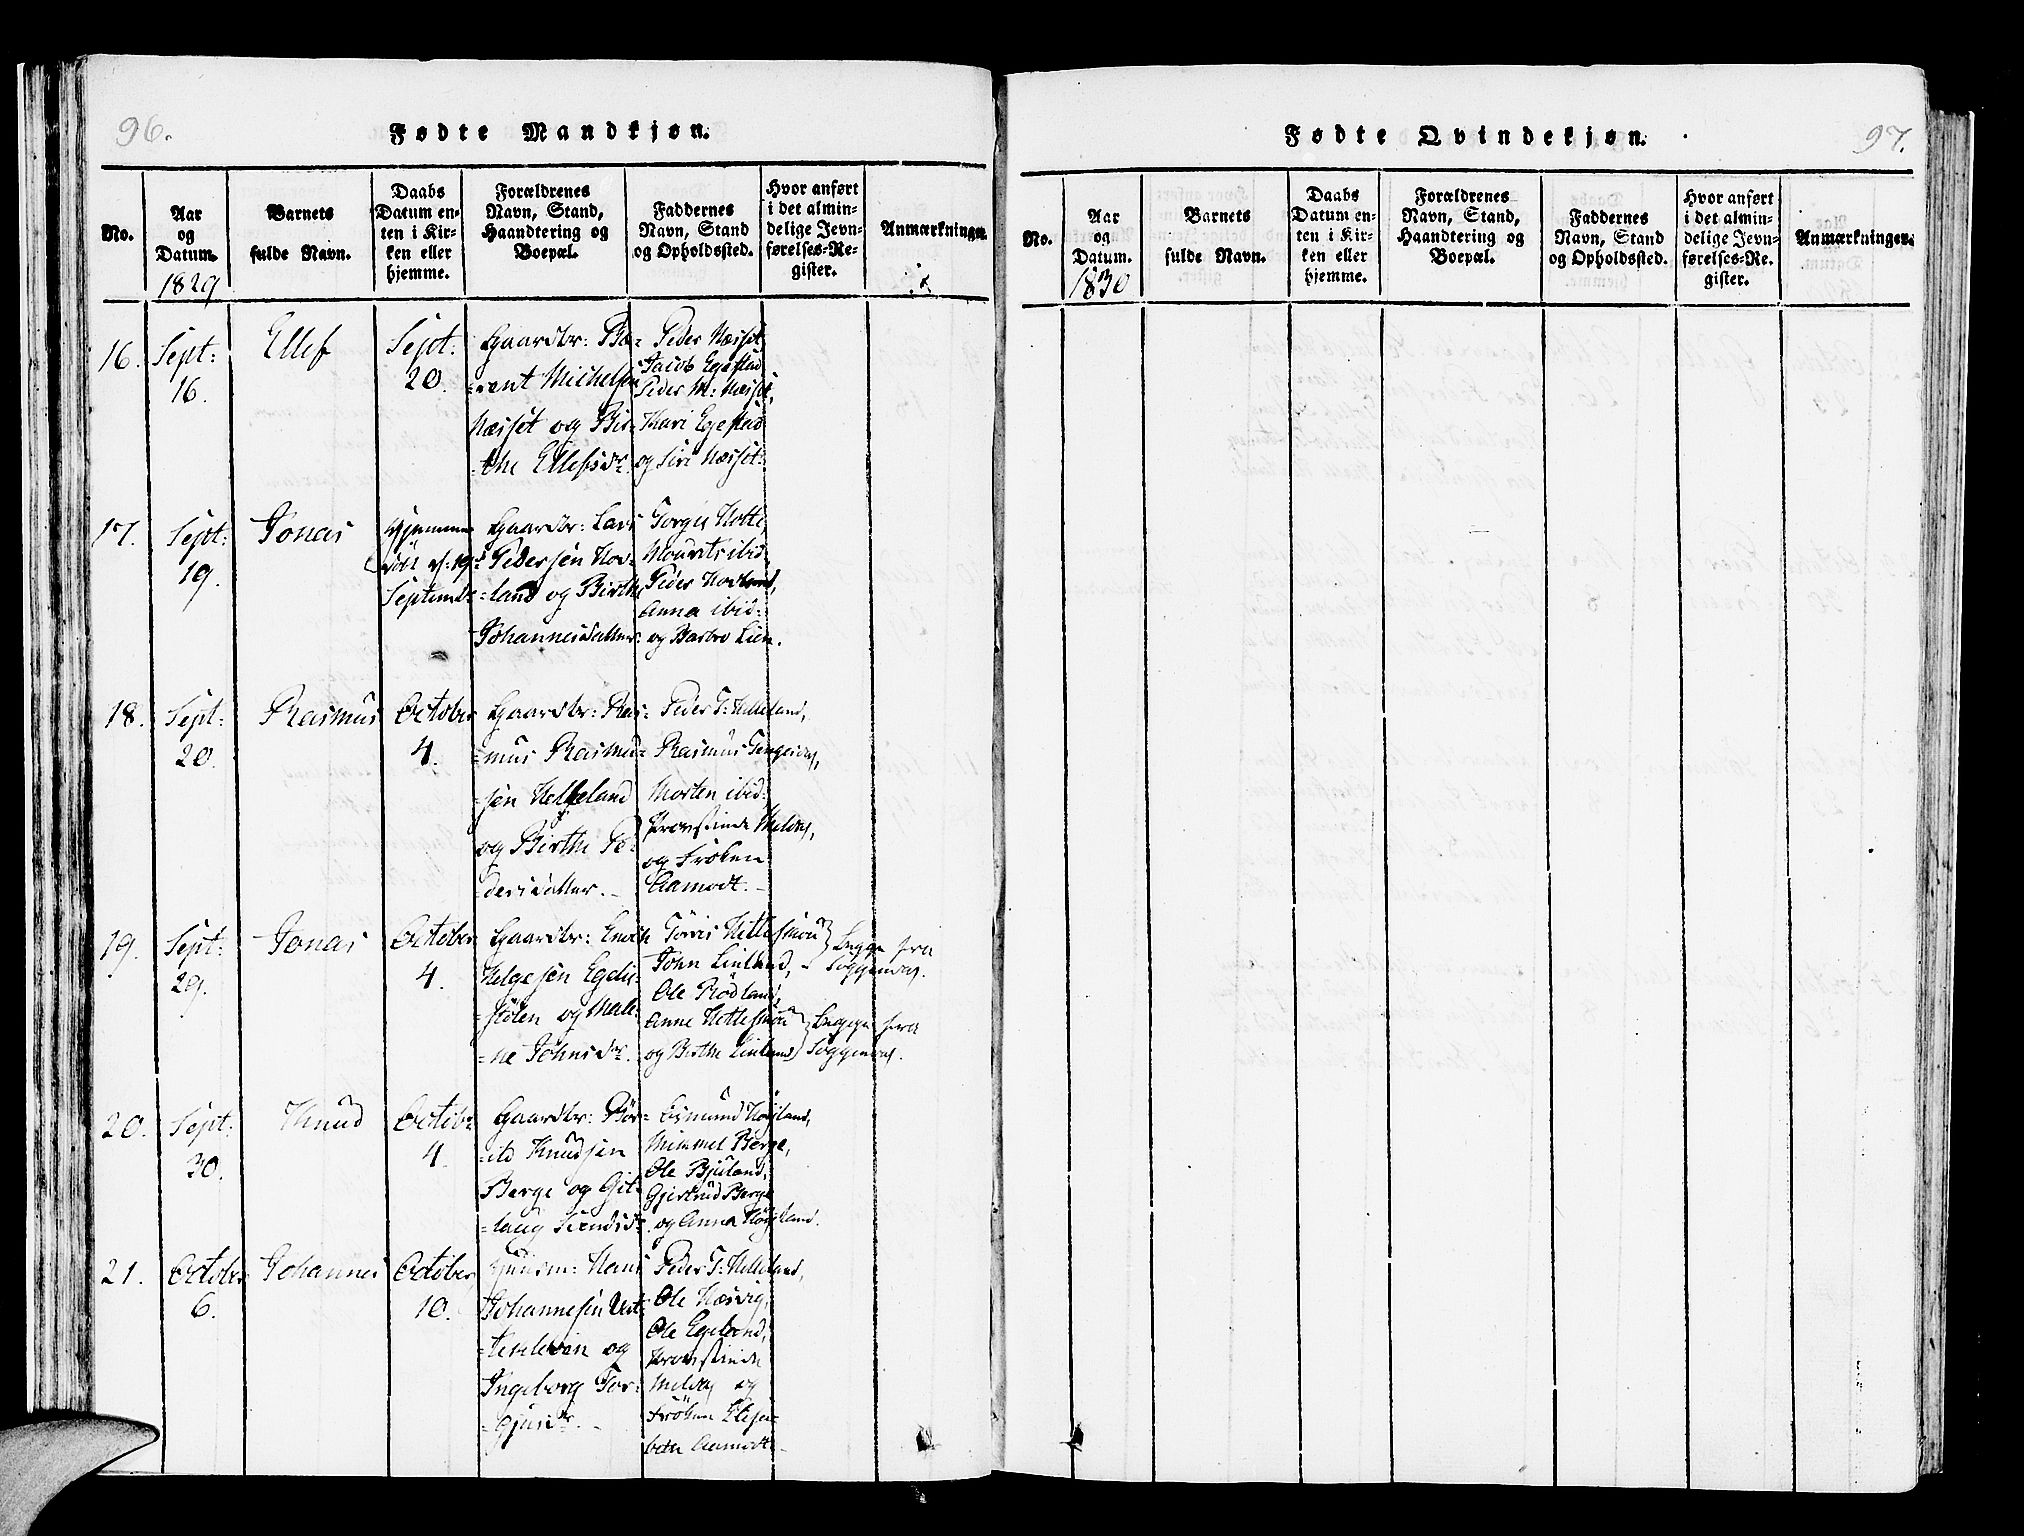 96.
Fødte Mandkjøn.
No.
Aar
og
Datum.
1829
Barnets
fulde Navn.
Daabs
Datum en-
ten i Kir-
ken eller
hjemme.
Forældrenes
Navn, Stand,
Haandtering og
Boepæl.
Faddernes
Navn, Stand
og Opholdssted.
Hvor anført
i det almin-
delige Jevn-
førelses-Re-
gister.
Anmærkninger.
16.
Sept:
16.
Ellef
Sept:
20.
Gaardbr: Bæ-
=rent Michelsen
Næsset og Bir-
=the Ellefsdr.
Peder Næsset,
Jacob Egestad
Peder M: Næsset,
Kari Egestad
og Siri Næsset.
17.
Sept:
19.
Jonas
Hjemme
døbt d: 19de
Septembr
Gaardbr: Lars
Pedersen Hov-
=land og Birthe
Johannesdatter.
Torger
Mourits ibid:
Peder Hovland,
Anna ibid:
og Barbro Lien.
18.
Sept:
20.
Rasmus
October
4.
Gaardbr: Ras-
=mus Rasmus-
=sen Helleland
og Birthe Pe-
=dersdatter.
Peder T: Helleland,
Rasmus Tengesdal,
Morten ibid:
Provstinde
og Frøken
Aamodt.
19.
Sept:
29.
Jonas
October
4.
Gaardbr: Enoch
Helgesen Egelis-
=stølen og Male-
=ne Johnsdr.
Tørres Hettesmoe
John Liuland,
Ole Rødland,
Anne Hettesmoe
og Birthe Liuland
Begge fra
Soggendal.
Begge fra
Soggendal.
20.
Sept:
30.
Knud
Octobr
4.
Gaardbr: Bør-
=ild Knudsen
Berge og Git-
=laug Svendsdr.
Asmund Høyland,
Mimmel Berge,
Ole Bjuland,
Gjertrud Berge
og Anna Høyland.
21.
October
6.
Johannes
October
10.
Huusm: Hans
Johannesen
og
Ingeborg Tor-
=gjusdr.
Peder T: Helleland,
Ole Hæsvig,
Ole Egeland,
Provstinde
og
Frøken Elisa-
beth Aamodt.
Fødte Qvindekjøn.
97.
No.
Aar
og
Datum.
1830
Barnets
fulde Navn.
Daabs
Datum en-
ten i Kir-
ken eller
hjemme.
Forældrenes
Navn, Stand,
Haandtering og
Boepæl.
Faddernes
Navn, Stand
og Opholdssted.
Hvor anført
i det almin-
delige Jevn-
førelses-Re-
gister.
Anmærkninger.